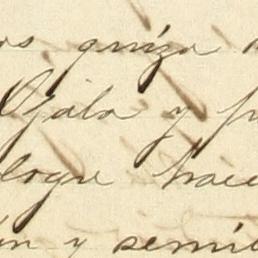 os quiza
Ojala y p
logre hace
ón y semil